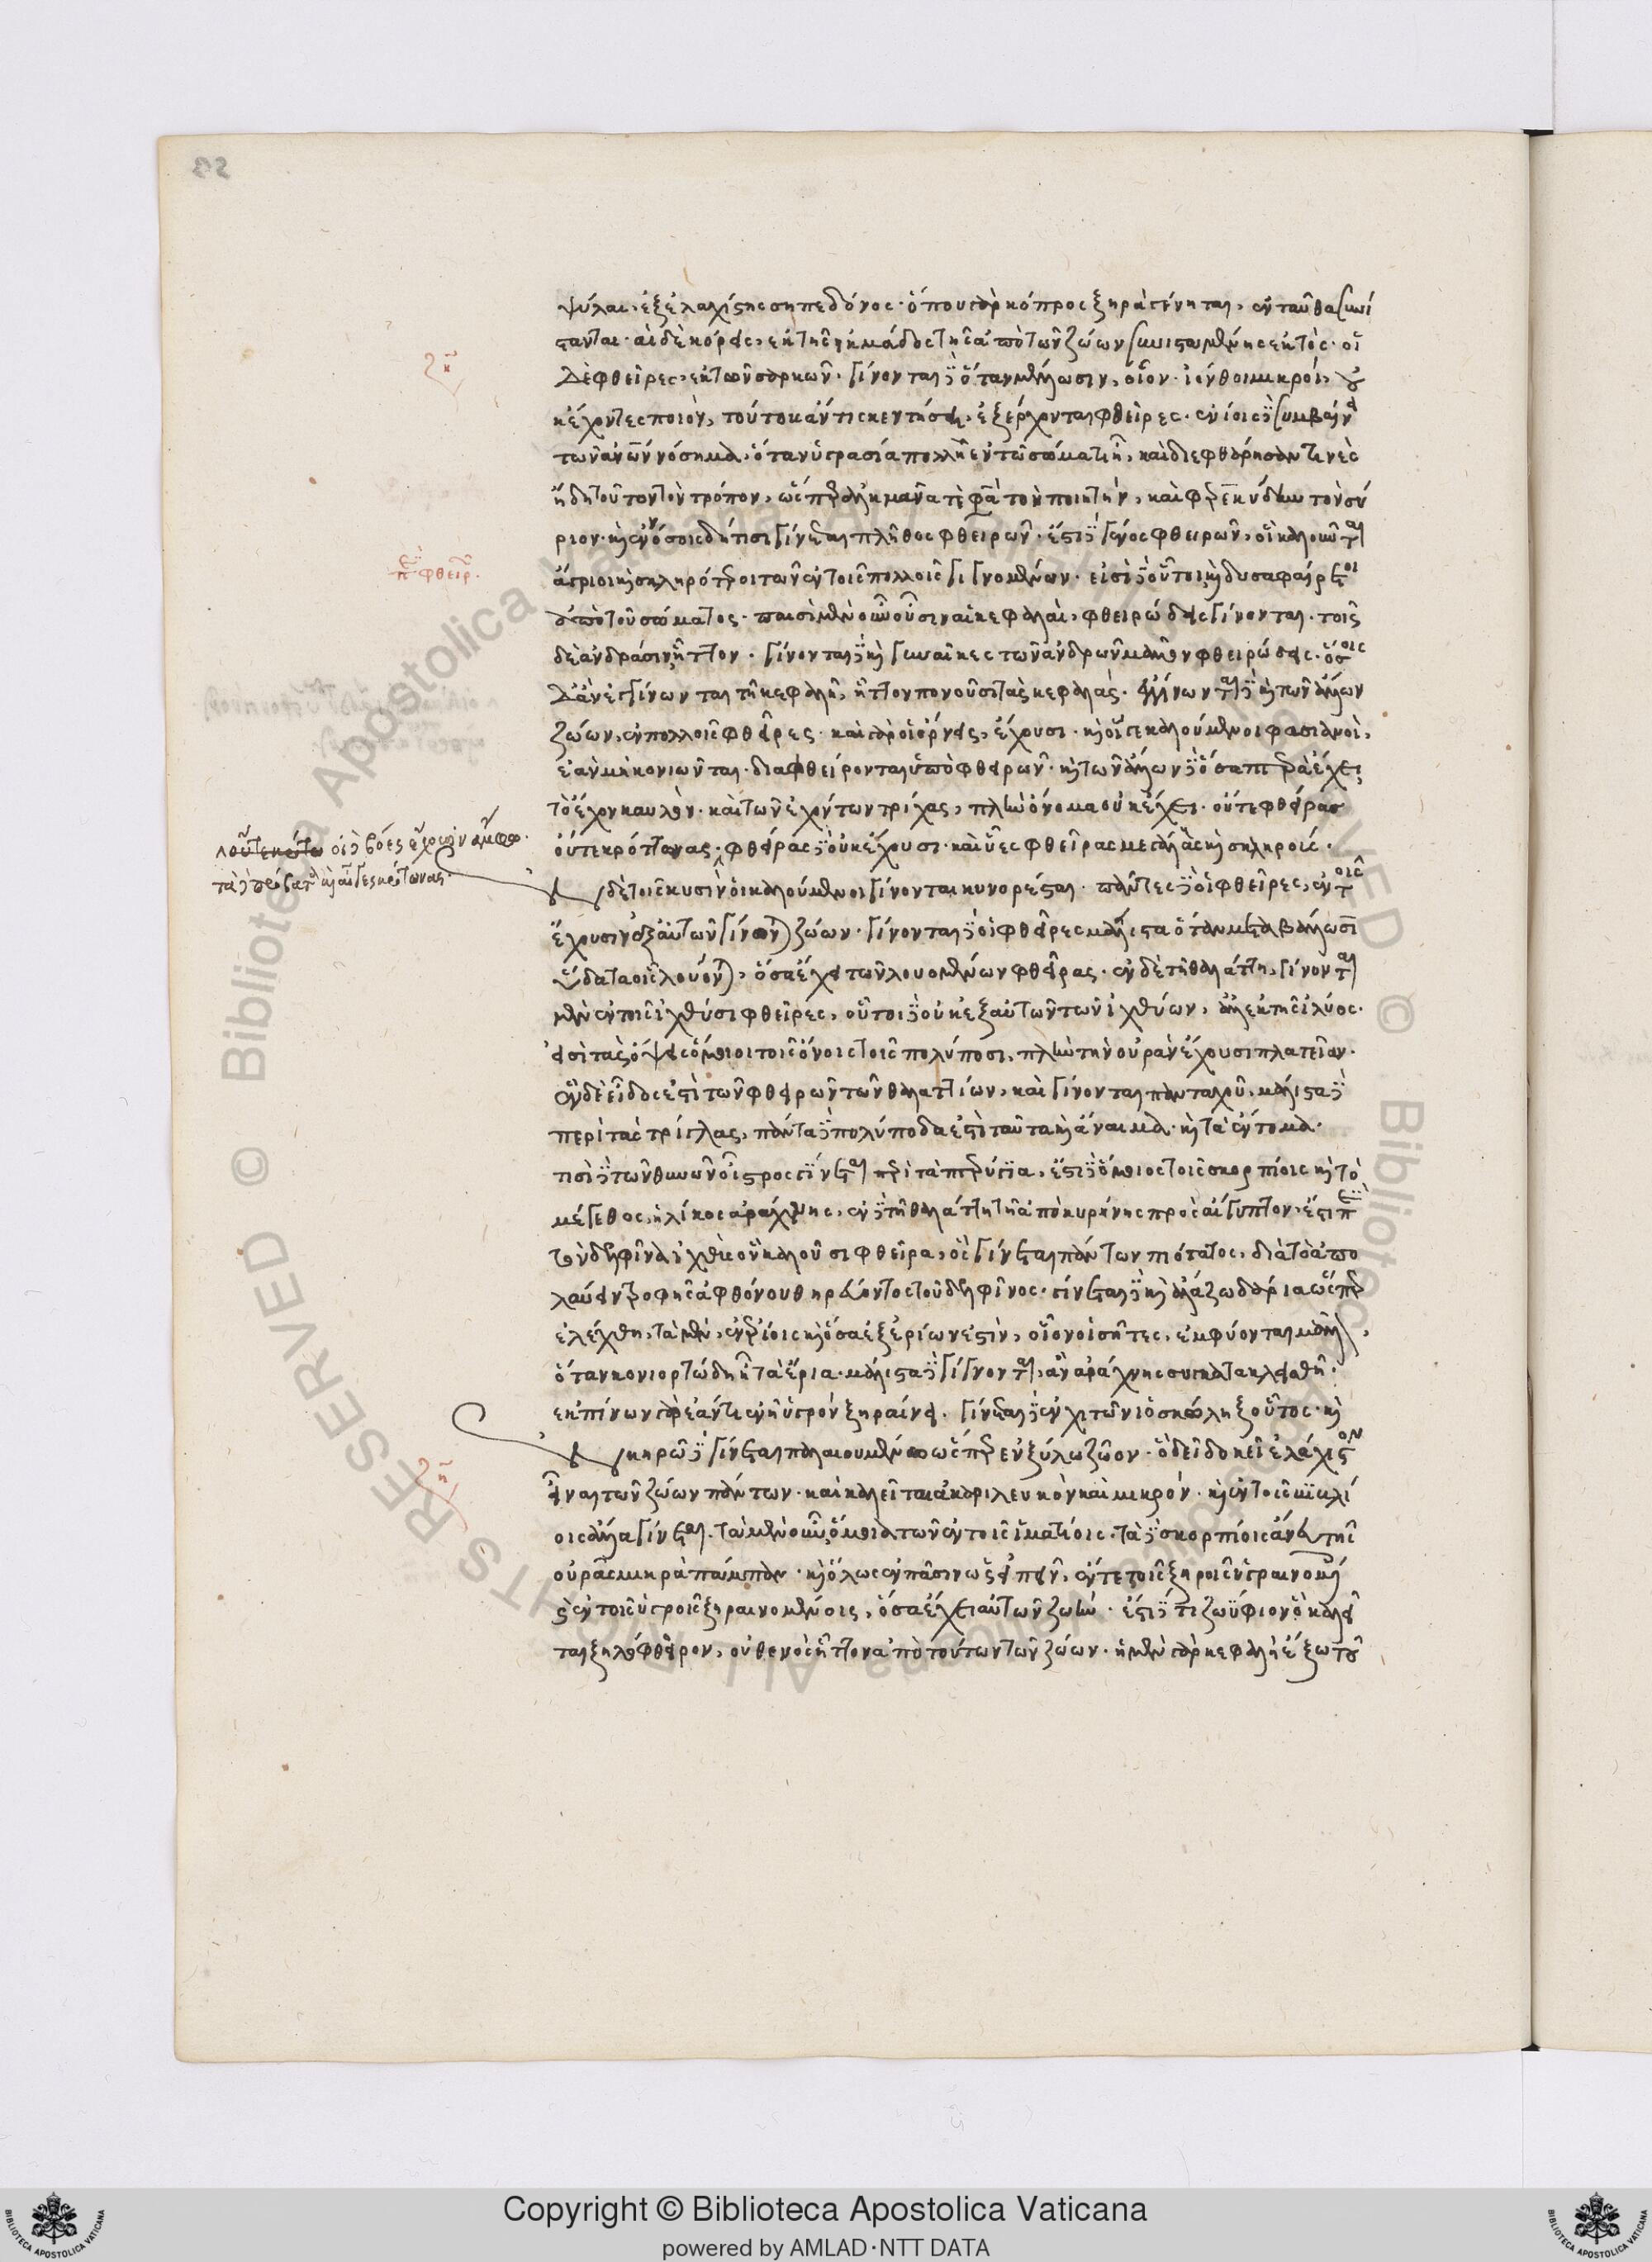 ψύλλαι, ἐξ ἐλαχίστης σηπεδόνος· ὅπου γὰρ κόπρος ξηρὰ γένηται, ἐνταῦθα συνί
στανται· αἱ δὲ κόρεις, ἐκ τῆς ἰκμάδος τῆς ἀπὸ τῶν ζώων συνισταμένης ἐκτός· οἱ
δὲ φθεῖρες, ἐκ τῶν σαρκῶν· γίνονται δὲ ὅταν μέλλωσιν, οἷον ἰόνθοι μικροί, οὐ
κ ἔχοντες ποιόν, τούτους ἄν τις κεντήσῃ, ἐξέρχονται φθεῖρες· ἐνίοις δὲ συμβαίνει
τῶν ἀνων νόσημα, ὅταν ὑγρασία πολλὴ ἐν τῷ σώματι ᾖ, καὶ διεφθάρησάν τινες
ἤδη τοῦτον τὸν τρόπον, ὥσπερ ἀλκμᾶνά τέ φασι τὸν ποιητήν, καὶ φερεκύδην τὸν σύ
ριον· καὶ ἐν νόσοις δή τισι γίνεται πλῆθος φθειρῶν· ἔστι δὲ γένος φθειρῶν, οἳ καλοῦνται
ἄγριοι καὶ σκληρότεροι τῶν ἐν τοῖς πολλοῖς γιγνομένων· εἰσὶ δὲ οὗτοι καὶ δυσαφαίρετοι
ἀπὸ τοῦ σώματος· παισὶ μὲν οὖν οὖσιν αἱ κεφαλαὶ, φθειρώδεις γίνονται· τοῖς
δὲ ἀνδράσιν ἧττον· γίνονται δὲ καὶ γυναῖκες τῶν ἀνδρῶν μᾶλλον φθειρώδεις· ὅσοις
δ' ἂν ἐγγίνωνται τῇ κεφαλῇ, ἧττον πονοῦσι τὰς κεφαλάς· ἐγγίνονται δὲ καὶ τῶν ἄλλων
ζώων, ἐν πολλοῖς φθεῖρες· καὶ γὰρ οἱ ὄρνεις, ἔχουσι· καὶ οἵ γε καλούμενοι φασιανοὶ,
ἐὰν μὴ κονιῶνται· διαφθείρονται ὑπὸ φθειρῶν· καὶ τῶν ἄλλων δὲ ὅσα πτερὰ ἔχει,
τὸ ἔχον καυλὸν· καὶ τῶν ἐχόντων τρίχας, πλὴν ὄνομα οὐκ ἔχει· οὔτε φθεῖρας
οὔτε κρότωνας· φθεῖρας δὲ οὐκ ἔχουσι· καὶ ὗες φθεῖρας μεγάλας καὶ σκληροίς·
οἱ δὲ βόες ἔχουσιν ἄμφω·
τὰ δὲ πρόβατα καὶ αἶγες κρότωνας·
ἐν δὲ τοῖς κυσὶν οἱ καλούμενοι γίνονται κυνορέσται· πάντες δὲ οἱ φθεῖρες, ἐν τοῖς
ἔχουσιν ἐξ αὐτῶν γίνονται ζώων· γίνονται δὲ οἱ φθεῖρες μάλιστα ὅταν μεταβάλλωσι
ὕδατα οἷς λούονται, ὅσα ἔχει τῶν λουομένων φθεῖρας· ἐν δὲ τῇ θαλάττῃ, γίνονται
μὲν ἐν τοῖς ἰχθύσι φθεῖρες, οὗτοι δὲ οὐκ ἐξ αὐτῶν τῶν ἰχθύων, ἀλλ' ἐκ τῆς ἰλύος·
εἰσὶ τὰς ὄψεις ὅμοιοι τοῖς ὄνοις τοῖς πολύποσι, πλὴν τὴν οὐρὰν ἔχουσι πλατεῖαν·
ἓν δὲ εἶδος ἐστὶ τῶν φθειρῶν τῶν θαλαττίων, καὶ γίνονται πανταχοῦ, μάλιστα δὲ
περὶ τὰς τρίγλας, πάντα δὲ πολύποδα ἐστὶ ταῦτα καὶ ἄναιμα· καὶ τὰ ἔντομα·
τισὶ δὲ τῶν θυννῶν οἶστρος γίνεται περὶ τὰ πτερύγια, ἔστι δὲ ὅμοιος τοῖς σκορπίοις καὶ τὸ
μέγεθος, ἡλίκος ἀράχνης, ἐν δὲ τῇ θαλάττῃ τῇ ἀπὸ κυρήνης πρὸς αἴγυπτον, ἔστι περὶ
τὸν δελφῖνα ἰχθὺς ὃν καλοῦσι φθεῖρα, ὃς γίνεται πάντων πιότατος, διὰ τὸ ἀπο
λαύειν τροφῆς ἀφθόνου θηρεύοντος τοῦ δελφῖνος· γίνεται δὲ καὶ ἄλλα ζωδάρια ὥσπερ
ἐλέχθη, τὰ μὲν, ἐν ἐρίοις καὶ ὅσα ἐξ ἐρίων ἐστὶν, οἷον οἱ σῆτες, ἐμφύονται μᾶλλον,
ὅταν κονιορτώδη ᾖ τὰ ἔρια· μάλιστα δὲ γίγνονται, ἂν ἀράχνης συγκατακλεισθῇ·
ἐκπίνων γὰρ ἐάν τι ἐνῇ ὑγρὸν ξηραίνει· γίνεται δὲ ἐν χιτῶνι ὁ σκώληξ οὗτος· καὶ
ἐν κηρῷ δὲ γίνεται παλαιουμένῳ ὥσπερ ἐν ξύλῳ ζῷον· ὃ δεῖ δοκεῖ ἐλάχιστον
εἶναι τῶν ζώων πάντων· καὶ καλεῖται ἀκαρι λευκὸν καὶ μικρόν· καὶ ἐν τοῖς βιβλί
οις ἄλλα γίνεται· τὰ μὲν οὖν ὅμοια τῶν ἐν τοῖς ἱματίοις· τὰ δὲ σκορπίοις ἄνευ τῆς
οὐρᾶς μικρὰ πάμπαν· καὶ ὅλως ἐν πᾶσιν ὡς εἰπεῖν, ἔν τε τοῖς ξηροῖς ὑγραινομέ
ἐν τοῖς ὑγροῖς ξηραινομένοις, ὅσα ἔχει αὐτῶν ζωήν· ἔστι δέ τι ζωΰφιον ὃ καλεῖ
ται ξυλοφθόρον, οὐθενὸς ἧττον ἄτοπον τούτων τῶν ζώων· ἡ μὲν γὰρ κεφαλὴ ἔξω τοῦ
περὶ φθειρ.
Copyright © Biblioteca Apostolica Vaticana
powered by AMLAD·NTT DATA